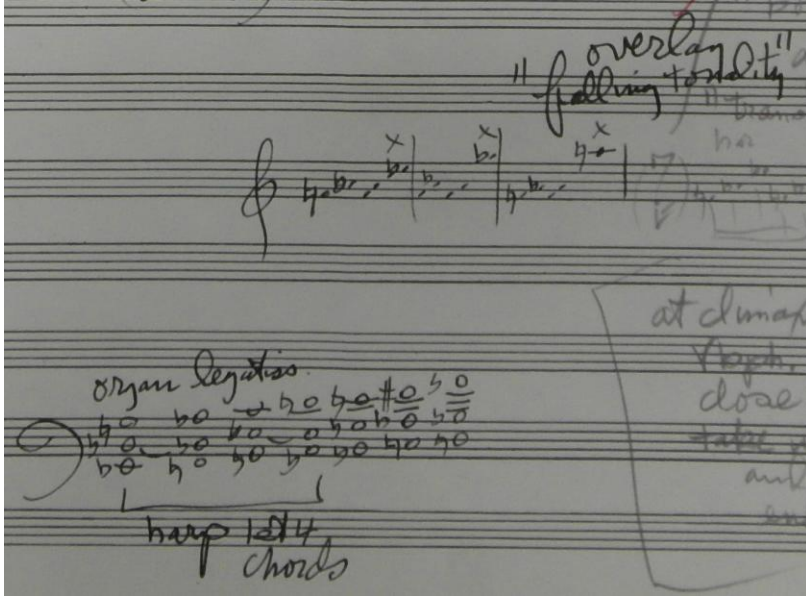 overlay
"falling tonality"
"trans
at climax
close
organ legatiss.
harp 1st 4
chords